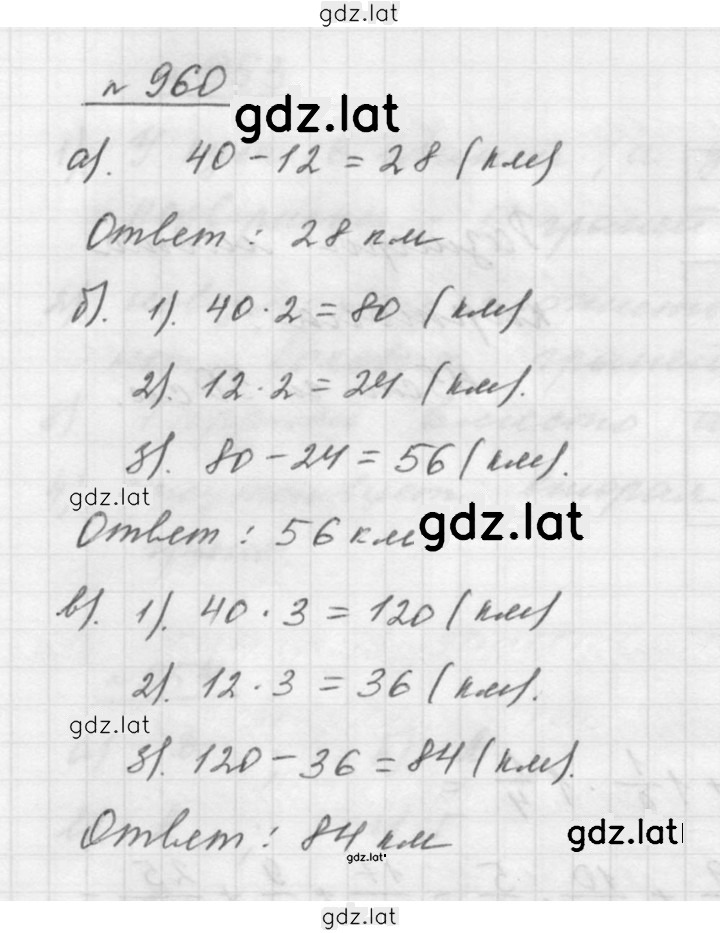 gdz.lat
№ 960
gdz.lat
а). 40 - 12 = 28 (км)
Ответ: 28 км
б). 1). 40 · 2 = 80 (км)
2). 12 · 2 = 24 (км).
3). 80 - 24 = 56 (км).
gdz.lat
gdz.lat
Ответ: 56 км
в). 1). 40 · 3 = 120 (км)
2). 12 · 3 = 36 (км).
gdz.lat
3). 120 - 36 = 84 (км).
Ответ: 84 км
gdz.lat
gdz.lat
gdz.lat